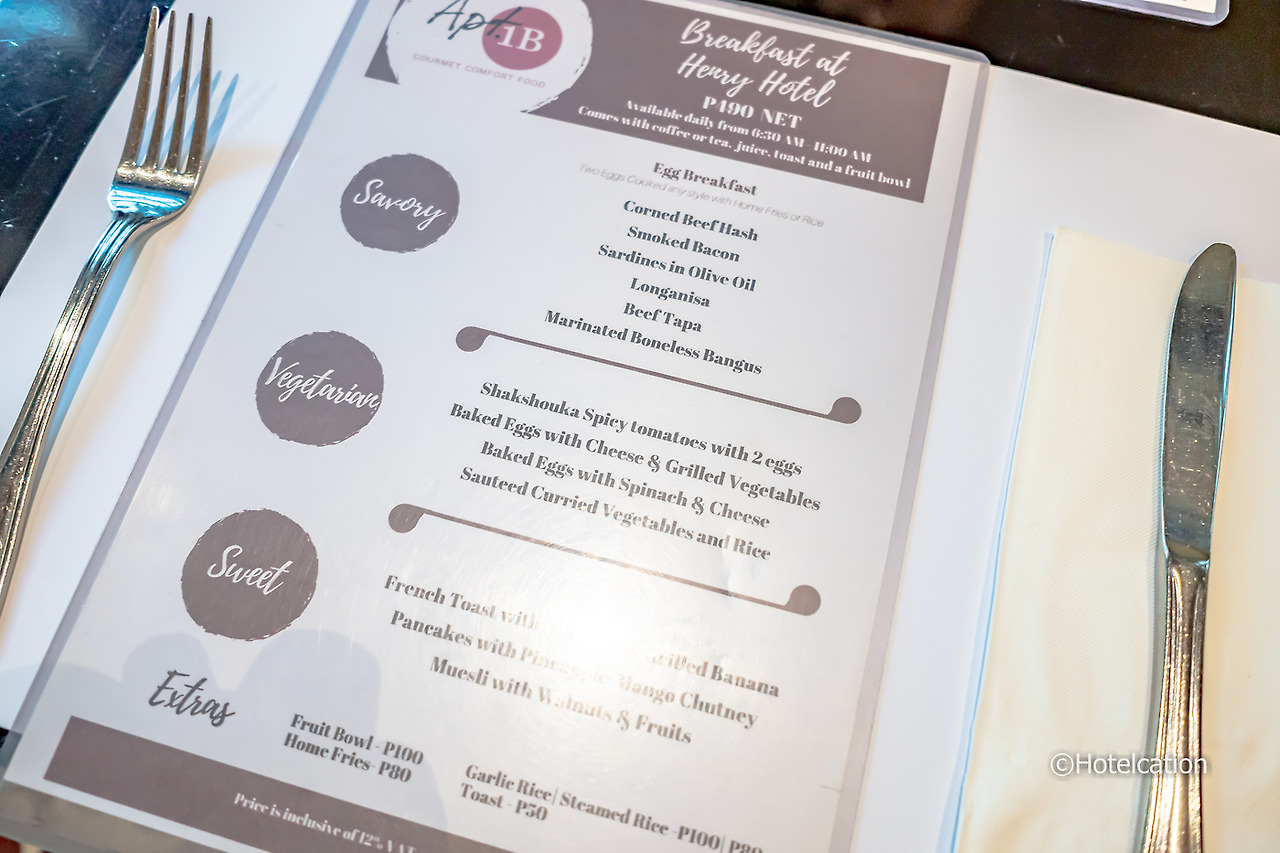 Apt. 1B
GOURMET COMFORT FOOD
Breakfast at
Henry Hotel
P490 NET
Available daily from 6:30 AM - 11:00 AM
Comes with coffee or tea, juice, toast and a fruit bowl
Savory
Egg Breakfast
Two Eggs Cooked any style with Home Fries or Rice
Corned Beef Hash
Smoked Bacon
Sardines in Olive Oil
Longanisa
Beef Tapa
Marinated Boneless Bangus
Vegetarian
Shakshouka Spicy tomatoes with 2 eggs
Baked Eggs with Cheese & Grilled Vegetables
Baked Eggs with Spinach & Cheese
Sauteed Curried Vegetables and Rice
Sweet
French Toast with Grilled Banana
Pancakes with Pineapple Mango Chutney
Muesli with Walnuts & Fruits
Extras
Fruit Bowl - P100
Home Fries- P80
Garlic Rice| Steamed Rice -P100| P80
Toast - P50
Price is inclusive of 12% VAT
©Hotelcation